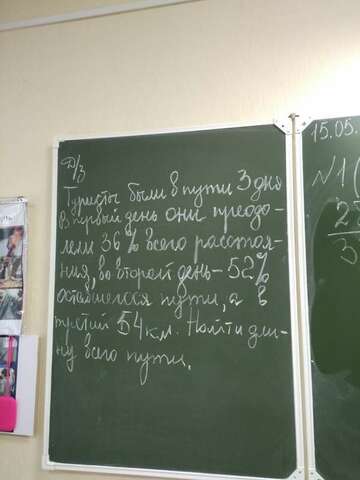 Д/З
Туристы были в пути 3 дня
В первый день они преодо-
лели 36% всего расстоя-
ния, во второй день – 52%
оставшегося пути, а в
третий 54 км. Найти дли-
ну всего пути.
15.05.
№1(